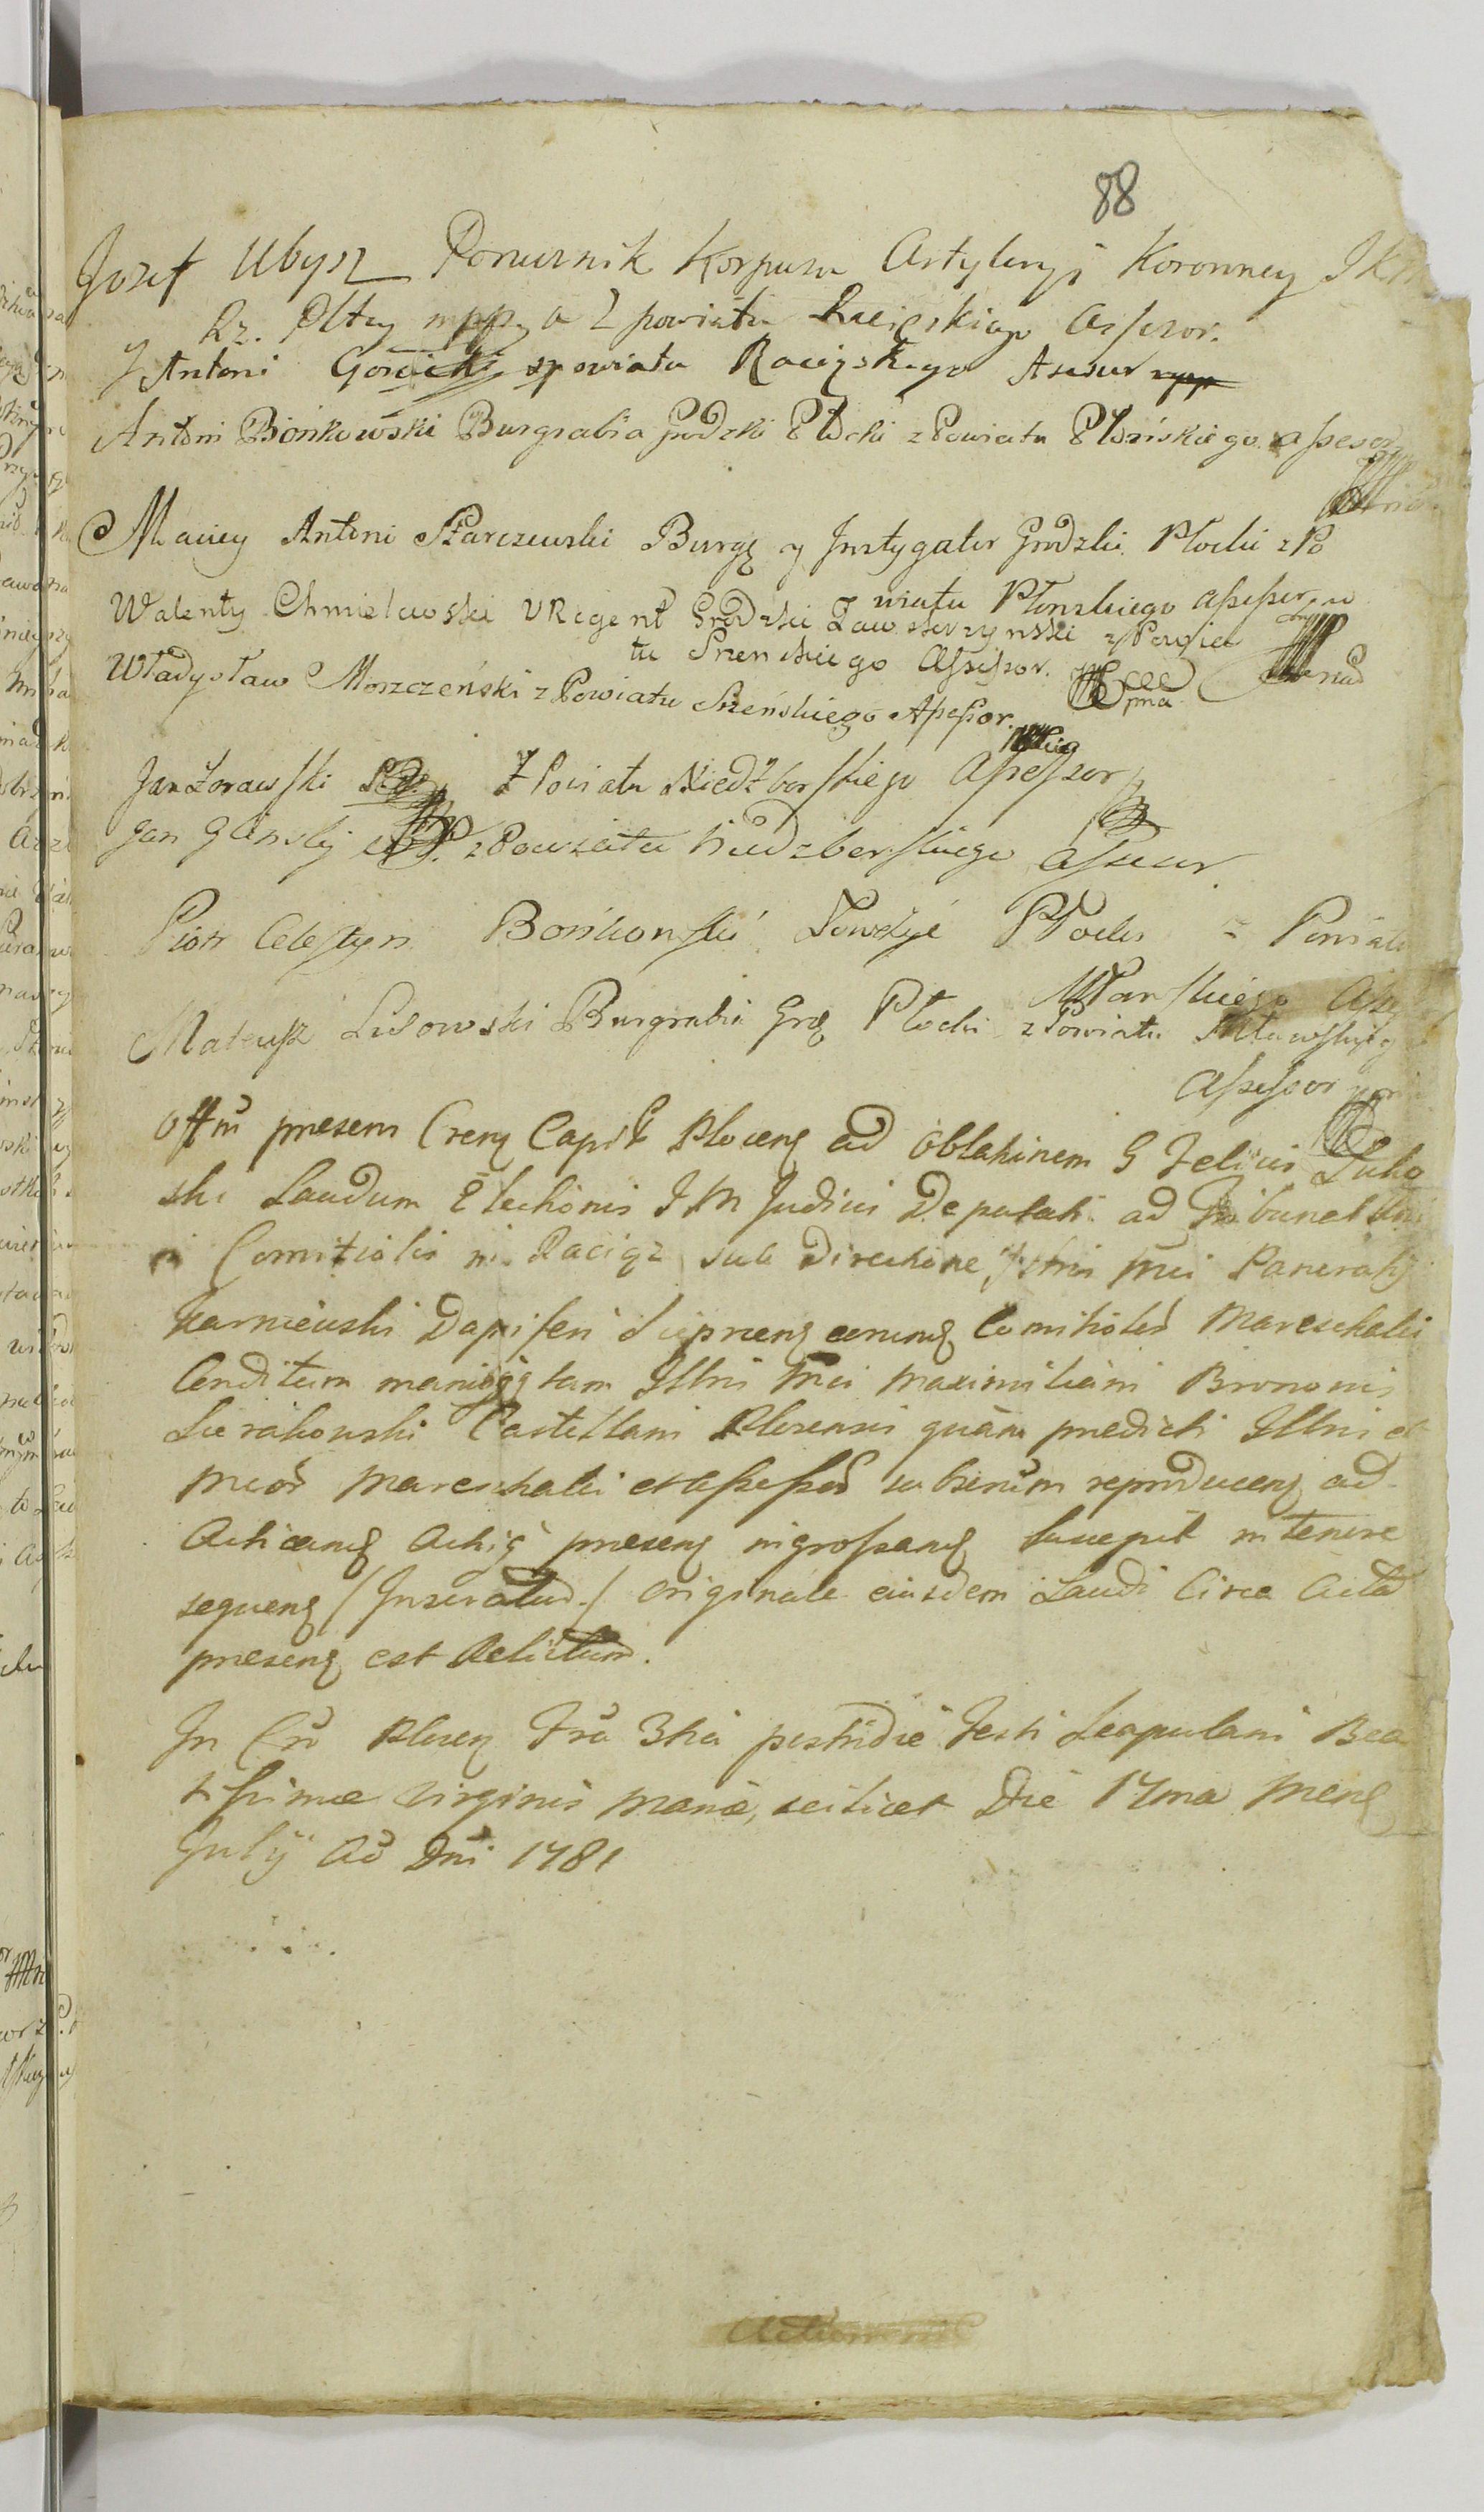 88
Jozef Ubysz Porucznik Korpusu Artyleryi Koronney J K
Rz. Pltey mpp a Z powiatu Raciąskiego Assesor.
J Antoni Gorecki z powiatu Raciąskiego Asesur mpp
Antoni Bońkowski Burgrabia Grodzki Płocki z Powiatu Płońskiego assesor
Maciey Antoni Starczewski Burgę y Instygator Grodzki Płocki z Po
wiatu Płonskiego assessor
Walenty Chmielewski VRegent Grodzki Zawskrzynski z Powia
tu Srenskiego Assessor.
Władysław Morzczeński z Powiatu Sreńskiego Assessor.
Jan Zorawski z Powiatu Niedzborskiego Assessor
Jan Glinsky z Powiatu Niedzborskiego Assesur
Piotr Celestyn Bońkowski Łowczyc Płocki z Powiatu
Mławskiego Ass
Mateusz Lisowski Burgrabia Grȩ Płocki z Powiatu Mławskieg
Assessor
Offm presens Crenȩ Capit Plocenȩ ad oblationem G Felicis Luko
ski Laudum Electionis J M Judicis Deputati ad Tribunal
Comitiolis in Raciąz sub Directione Jllris Mei Pancratij
Karniewski Dapiferi Sieprcenȩ eorumȩ Comitioloȓ Mareschalci
Conditum manibȝ tam Jllris Mei Maximiliani Bronomis
Sierakowski Castellani Plocensis quam predicti Jllris et
Mcoȓ Mareschalci et Assessoȓ subscrium reproducenȩ ad
Acticanȩ Actisȝ presenȩ ingrossanȩ suscepit in tenore
sequenȩ /Inseratur./ Originale eiusdem Laudi Circa Acta
presenȩ est Relictum.
In Cro Plocen Fra 3tia postridie Festi Scapulani Bea
tissimæ Virginis Mariæ, scilicet Die 17ma Menȩ
Julij Ao Dni 1781